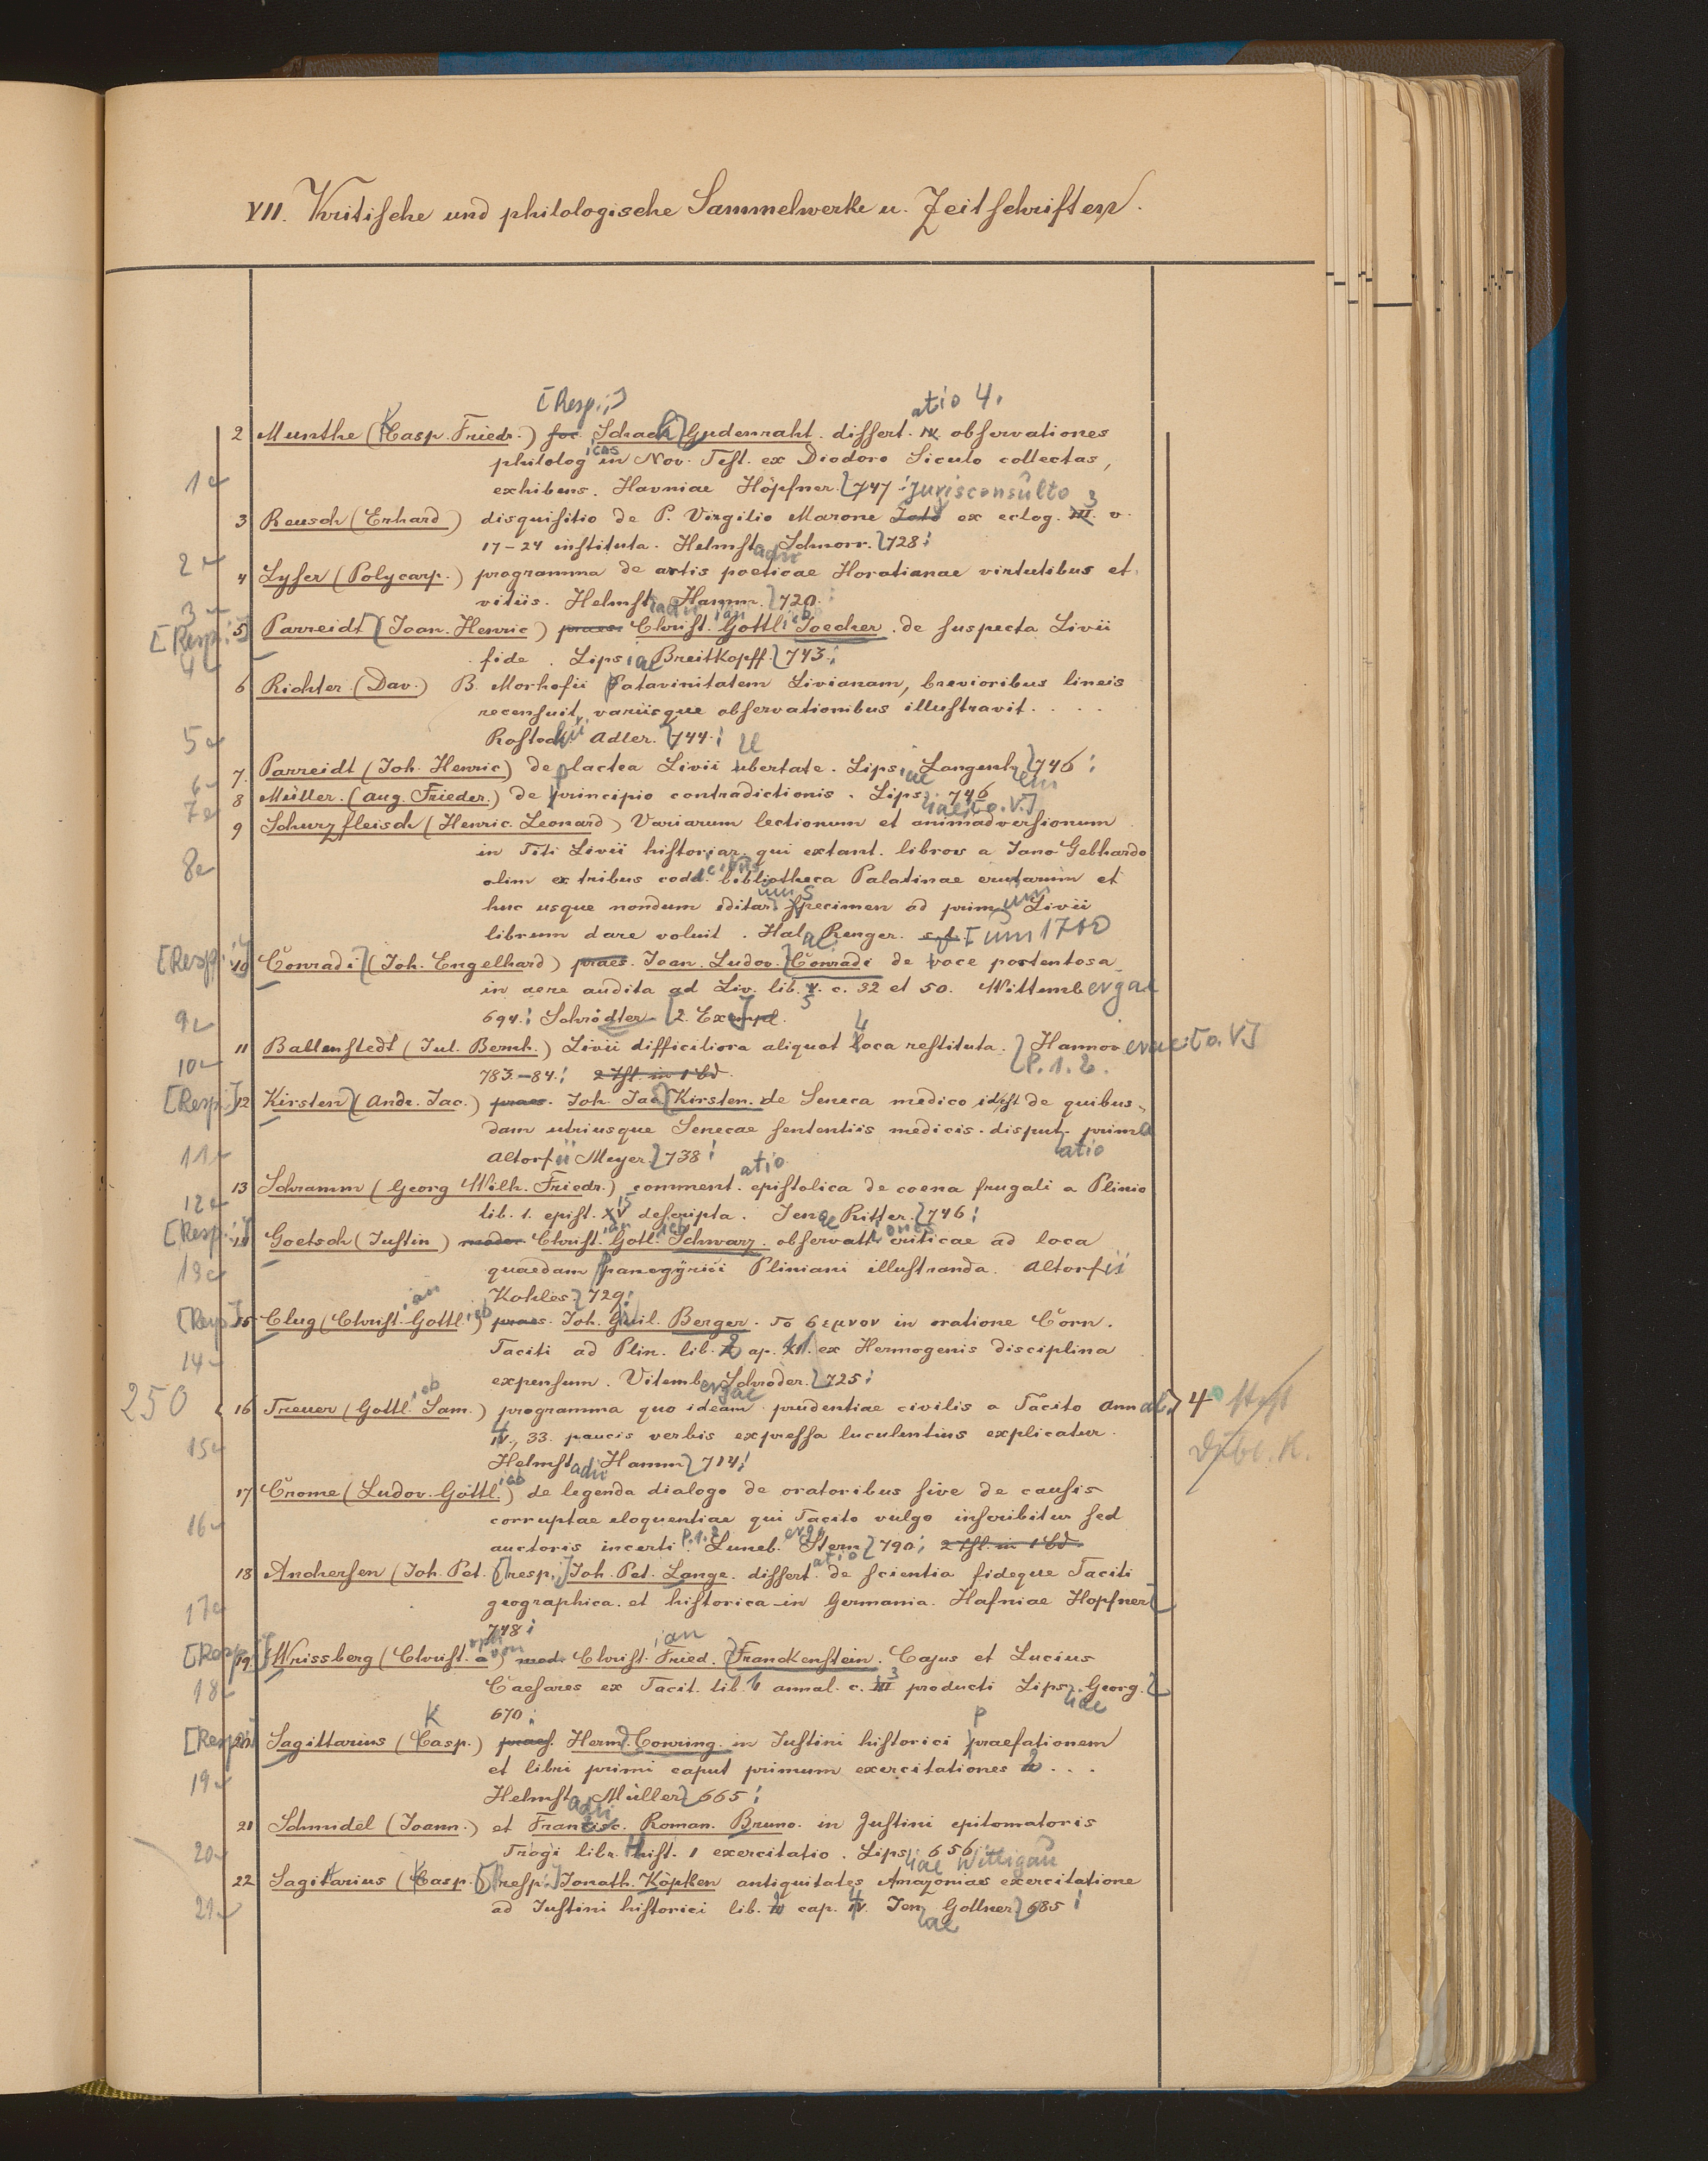 VII. Kritische und philologische Sammelwerke u. Zeitschriften.
[Resp.:] atio 4.
2 Munthe (Casp. Friedr.) Schach Gudenraht. dissert. IV. observationes
philolog icas in Nov. Test. ex Diodoro Siculo collectas,
1 exhibens. Havniae Höpfner. 747 : Jurisconsulto 3
3 Reusch (Erhard) disquisitio de P. Virgilio Marone Icto ex eclog. III. v.
17-24 instituta. Helmst adii Schnorr. 728:
2
4 Lyser (Polycarp.) programma de artis poeticae Horatianae virtutibus et
vitiis. Helmst adii Hamm. 720.
3
[Resp.:] 5 Parreidt (Joan. Henric) praes. Christ. ian Gottl. ieb Joecher. de suspecta Livii
4 fide. Lips iae Breitkopff. 743:
6 Richter (Dav.) B. Morhofii Patavinitatem Livianam, brevioribus lineis
recensuit, variisque observationibus illustravit. . . .
5 Rostoch ii Adler. 744: U
7. Parreidt (Joh. Henric) de lactea Livii ubertate. Lips iae Langenh em 746:
6
8 Müller. (Aug. Frieder.) de principio contradictionis. Lips. 746
7 iae [o. V.]
9 Schurzfleisch (Henric. Leonard) Variarum lectionum et animadversionum
in Titi Livii historiar. qui extant. libros a Jano Gebhardo
8 olim ex tribus codd. bibliotheca Palatinae erutarum et
huc usque nondum editar Specimen ad prim um Livii
librum dare voluit. Hal ae Renger. s. a. [um 1710
[Resp.:] 10 Conradi (Joh. Engelhard) praes. Joan. Ludov. Conradi de voce portentosa
in aere audita ad Liv. lib. V. c. 32 et 50. Wittemb ergae
9 694: Schrödter [2. Exempl.
11 Ballenstedt (Jul. Bernh.) Livii difficiliora aliquot Loca restituta. Hannov erae: [o. V.]
10 783-84: 2 Thl. in 1 Bd. P. 1. 2.
[Resp.:] 12 Kirsten (Andr. Jac.) praes. Joh. Jac Kirsten. de Seneca medico idest de quibus-
dam utriusque Senecae sententiis medicis. disput. prima
11 Altorf ii Meyer 738: atio
atio
13 Schramm (Georg Wilh. Friedr.) comment. epistolica de coena frugali a Plinio
12 lib. 1. epist. XV 15 descripta. Jen ae Ritter. 746:
[Resp.:] 14 Goetsch (Justin) moder. Christ. ian Gotl. ieb Schwarz. observatt iones criticae ad loca
13 quaedam panegyrici Pliniani illustranda. Altorf ii
Kohles 729:
[Resp.] 15 Clug (Christ. ian Gottl. ieb) praes. Joh. Guil. Berger. το σεμνον in oratione Corn.
14 Taciti ad Plin. lib. 2 ep. 11. ex Hermogenis disciplina
expensum. Vitemb ergae Schröder. 725:
250 16 Treuer (Gottl. ieb Sam.) programma quo ideam prudentiae civilis a Tacito Ann al. 4°
4 IV., 33. paucis verbis expressa luculentius explicatur.
15 Helmst adii Hamm 714:
17 Crome (Ludov. Gottl. ieb) de legenda dialogo de oratoribus sive de causis
16 corruptae eloquentiae qui Tacito vulgo inscribitur sed
auctoris incerti P. 1. 2. Luneb. ergi Stern 790: 2 Thl. in 1 Bd.
18 Anchersen (Joh. Pet. [resp.:] Joh. Pet. Lange. dissert. atio de scientia fideque Taciti
17 geographica et historica in Germania. Hafniae Hopfner
748:
[Resp.:] 19 Wrissberg (Christ. oph a von) mod. Christ. ian Fried. Franckenstein. Cajus et Lucius
18 Caesares ex Tacit. lib. 1 annal. c. III 3 producti Lips iae Georg.
670:
[Resp.:] 20 Sagittarius (Casp.) K praes. Herm. Conring. in Justini historici praefationem
19 et libri primi caput primum exercitationes 2. . .
Helmst adii Müller 665:
21 Schmidel (Joann.) et Francisc. Roman. Bruno. in Justini epitomatoris
20 Trogi libr. Hist. 1 exercitatio. Lips iae 656: Wittigau
22 Sagittarius (Casp. [resp.:] Jonath. Köpken antiquitates Amazoniae exercitatione
21 ad Justini historici lib. 2 cap. IV. 4 Jen ae Gollner 685: